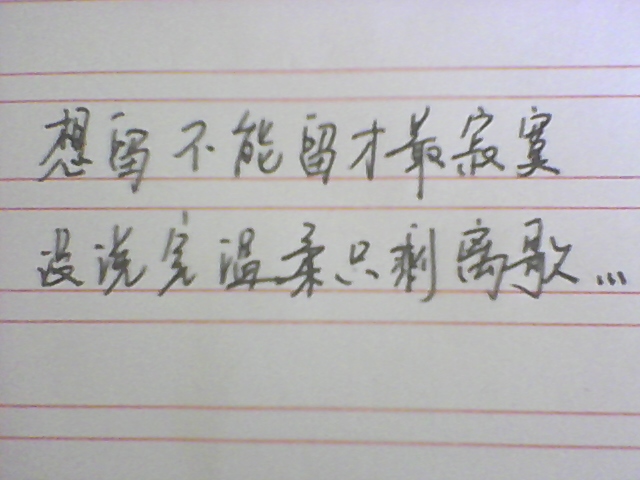 想留不能留才最寂寞
没说完温柔只剩离歌...